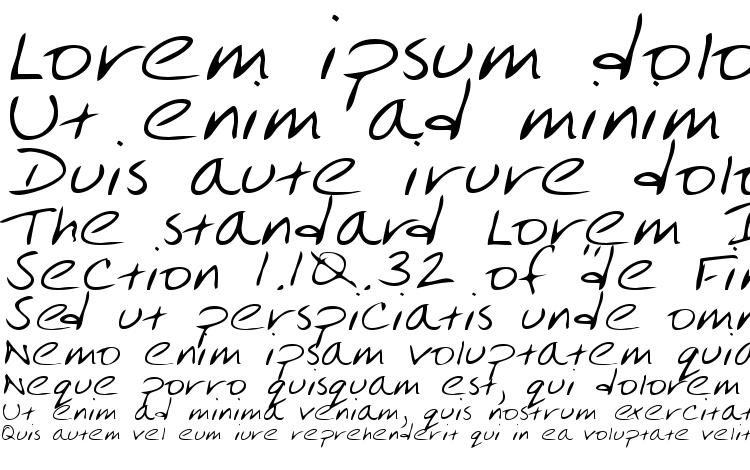 Lorem ipsum dolo
Ut enim ad minim
Duis aute irure dolo
The standard Lorem I
Section 1.10.32 of "de Fin
Sed ut perspiciatis unde omn
Nemo enim ipsam voluptatem quia
Neque porro quisquam est, qui dolorem
Ut enim ad minima veniam, quis nostrum exercitat
Quis autem vel eum iure reprehenderit qui in ea voluptate velit